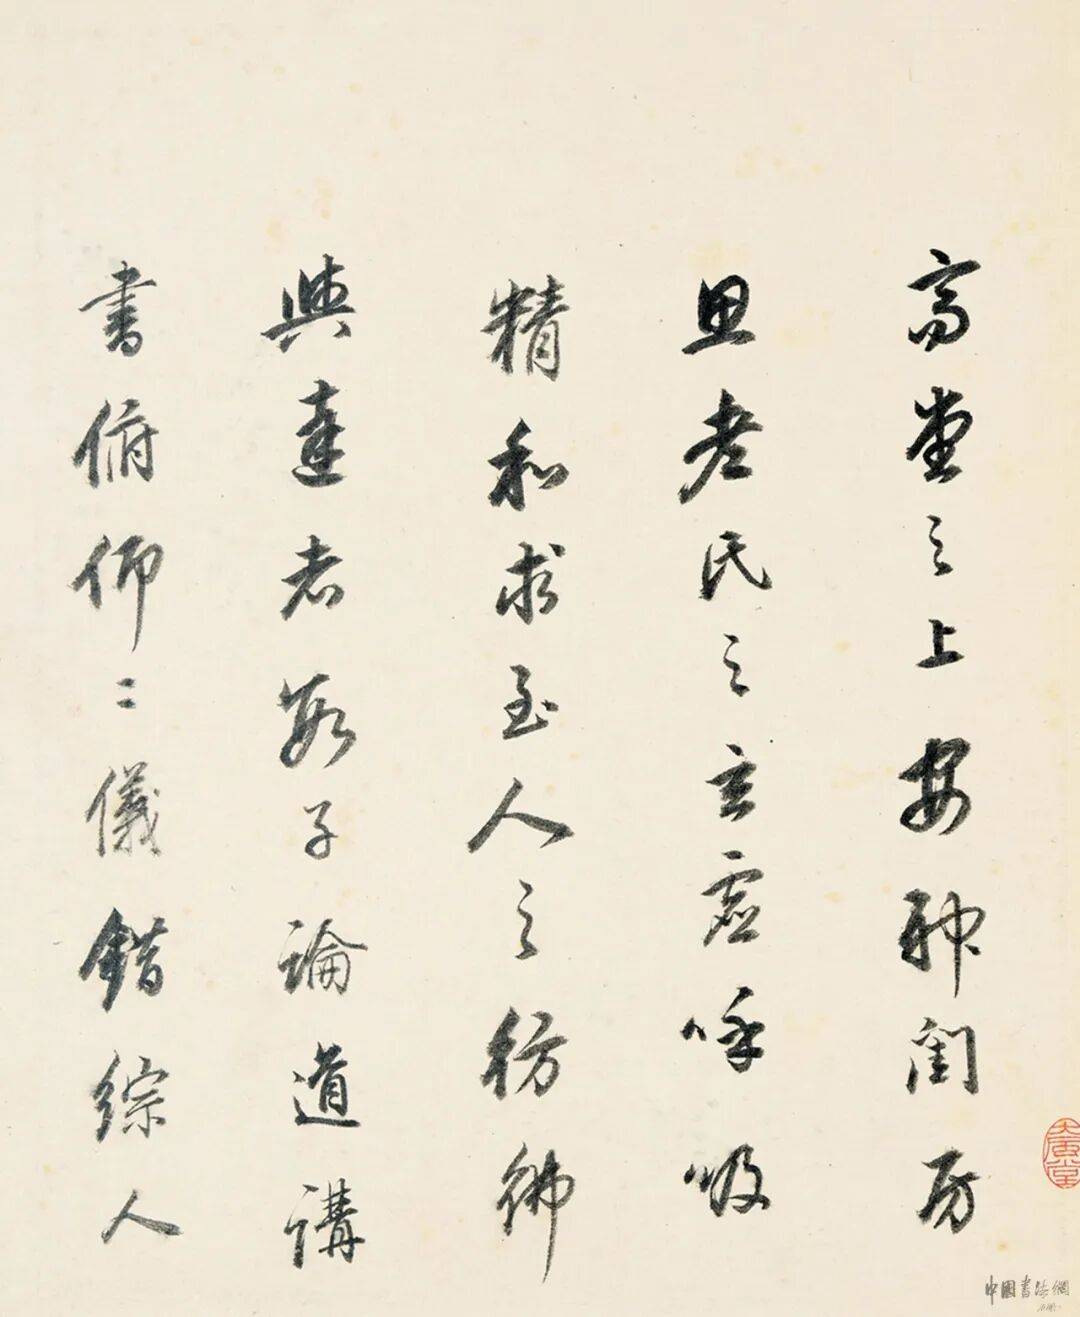 高堂之上安神閨房
思老氏之玄虛呼吸
精和求至人之彷彿
與達者數子論道講
書俯仰二儀錯綜人
中國書法網